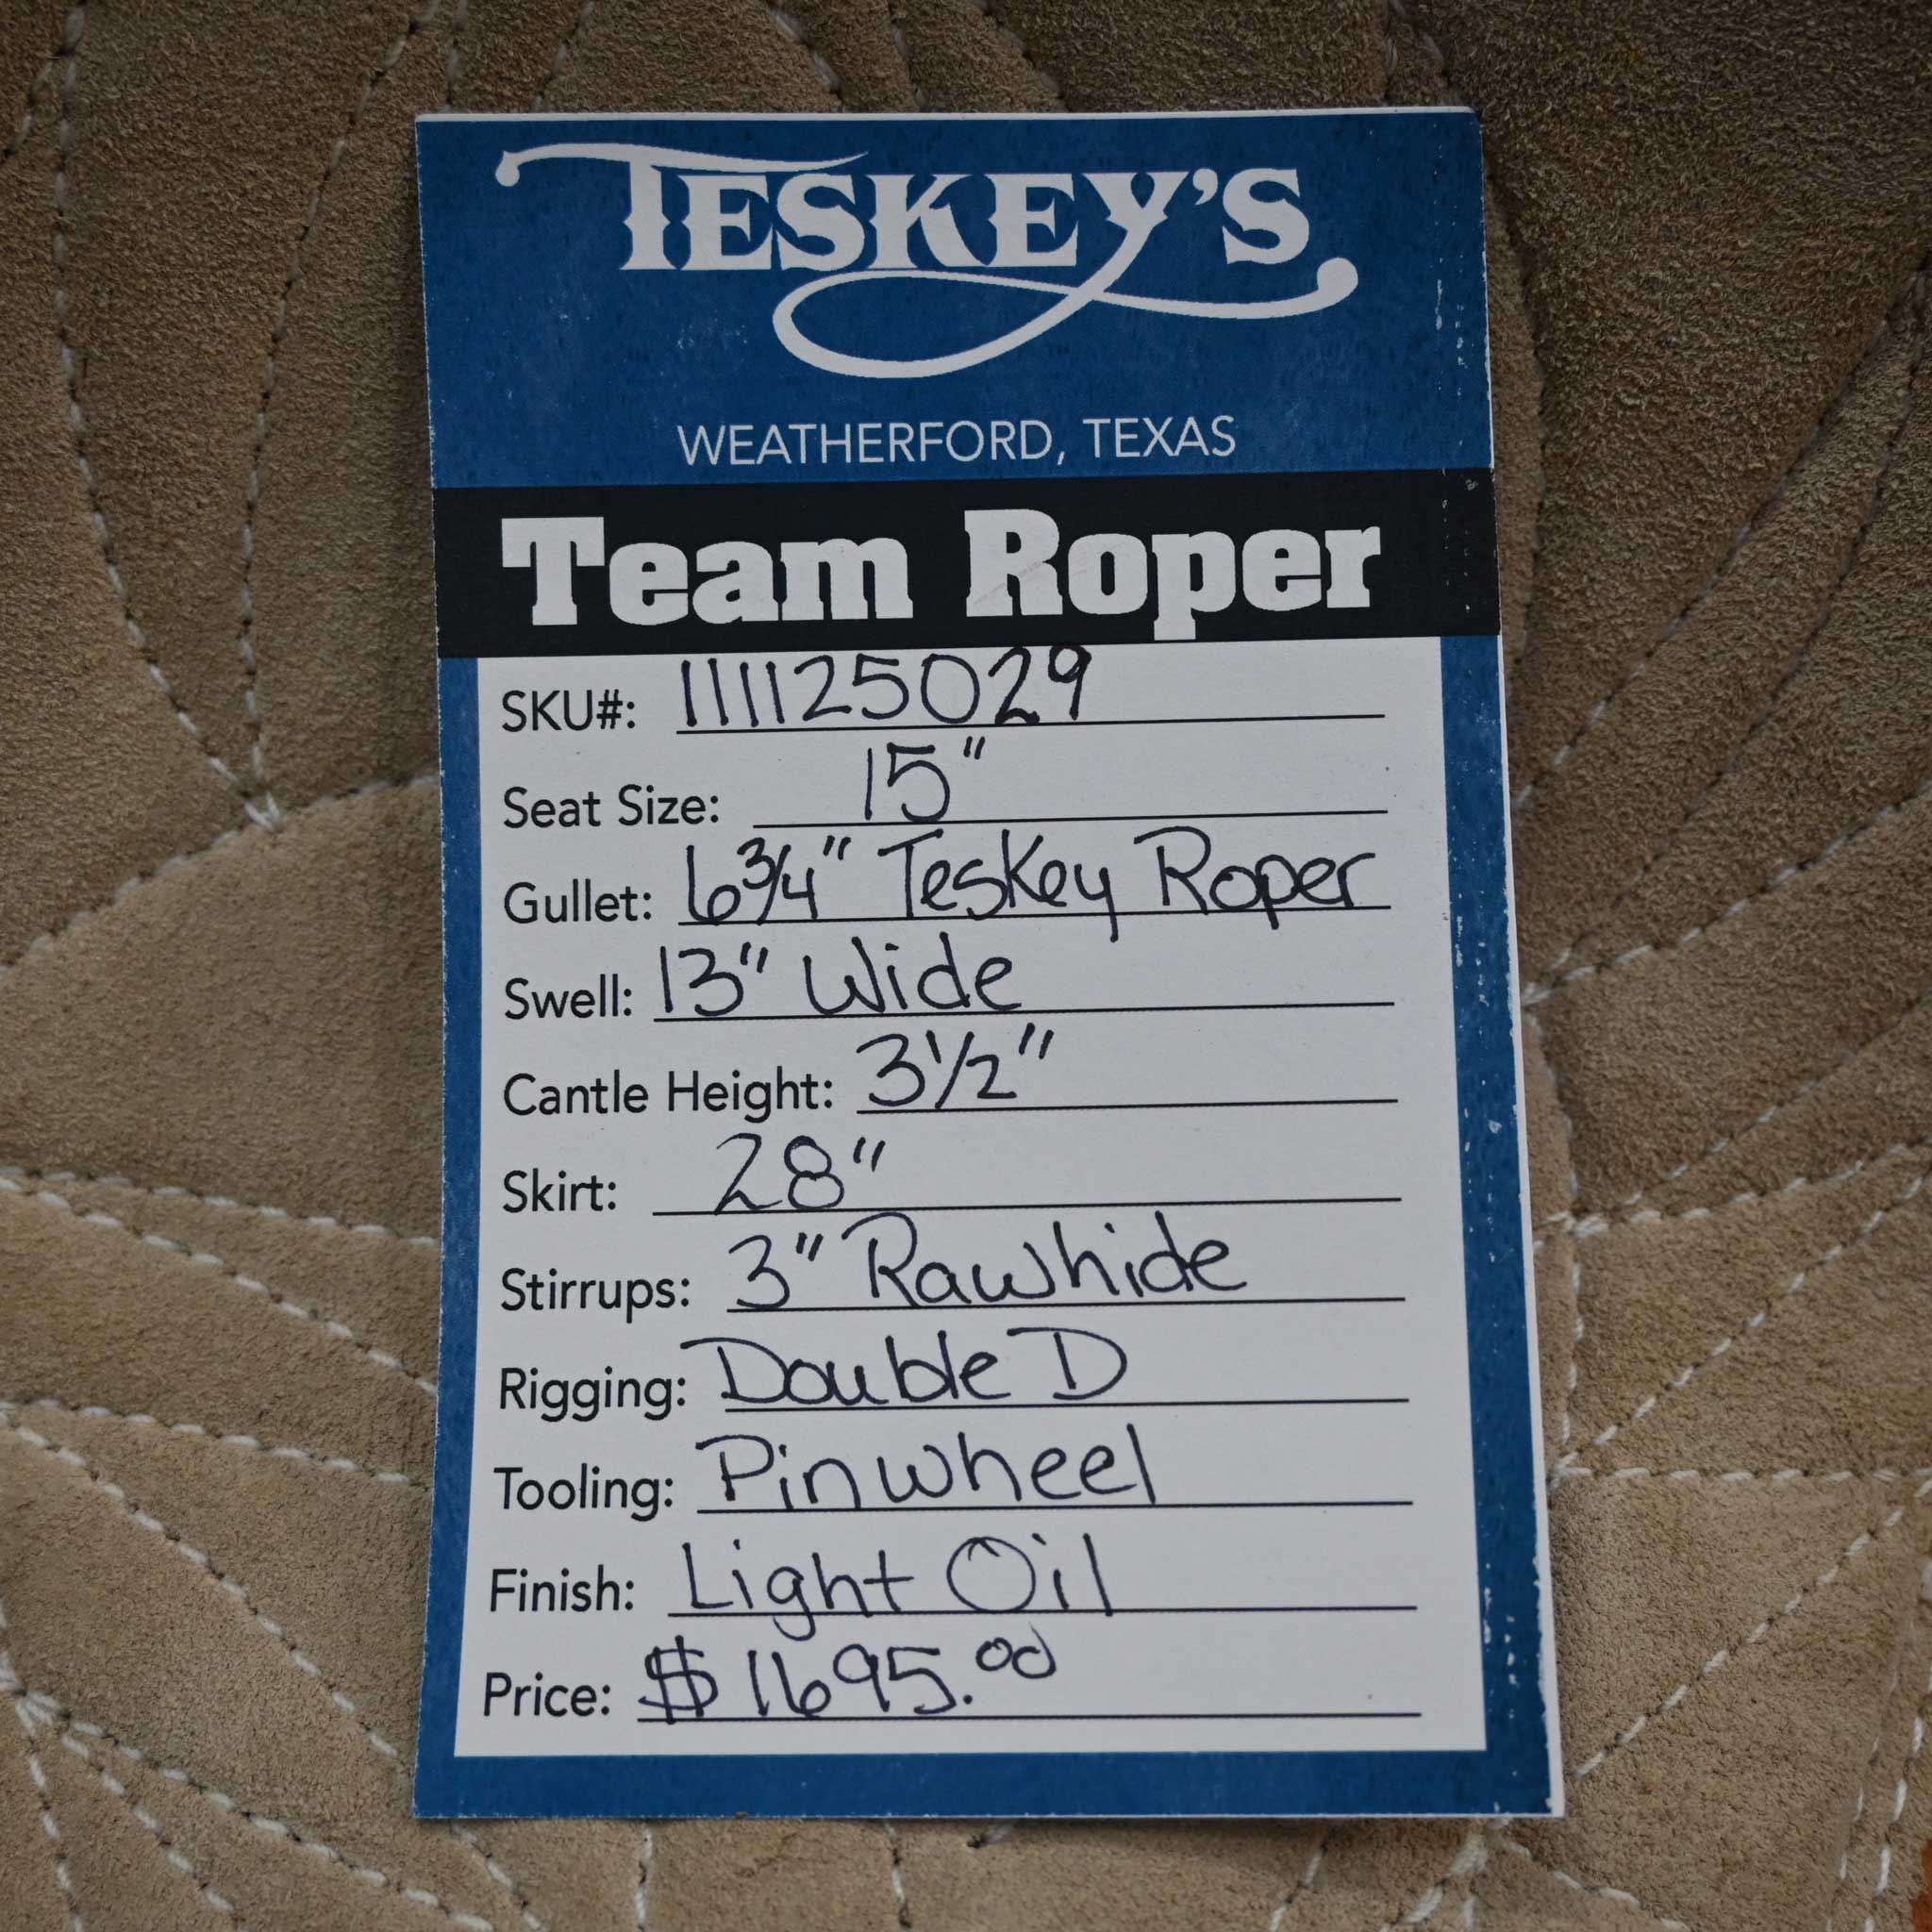 TESKEY'S
WEATHERFORD, TEXAS
Team Roper
SKU#: 111125029
Seat Size: 15"
Gullet: 6 3/4" Teskey Roper
Swell: 13" Wide
Cantle Height: 3 1/2"
Skirt: 28"
Stirrups: 3" Rawhide
Rigging: Double D
Tooling: Pinwheel
Finish: Light Oil
Price: $1695.00